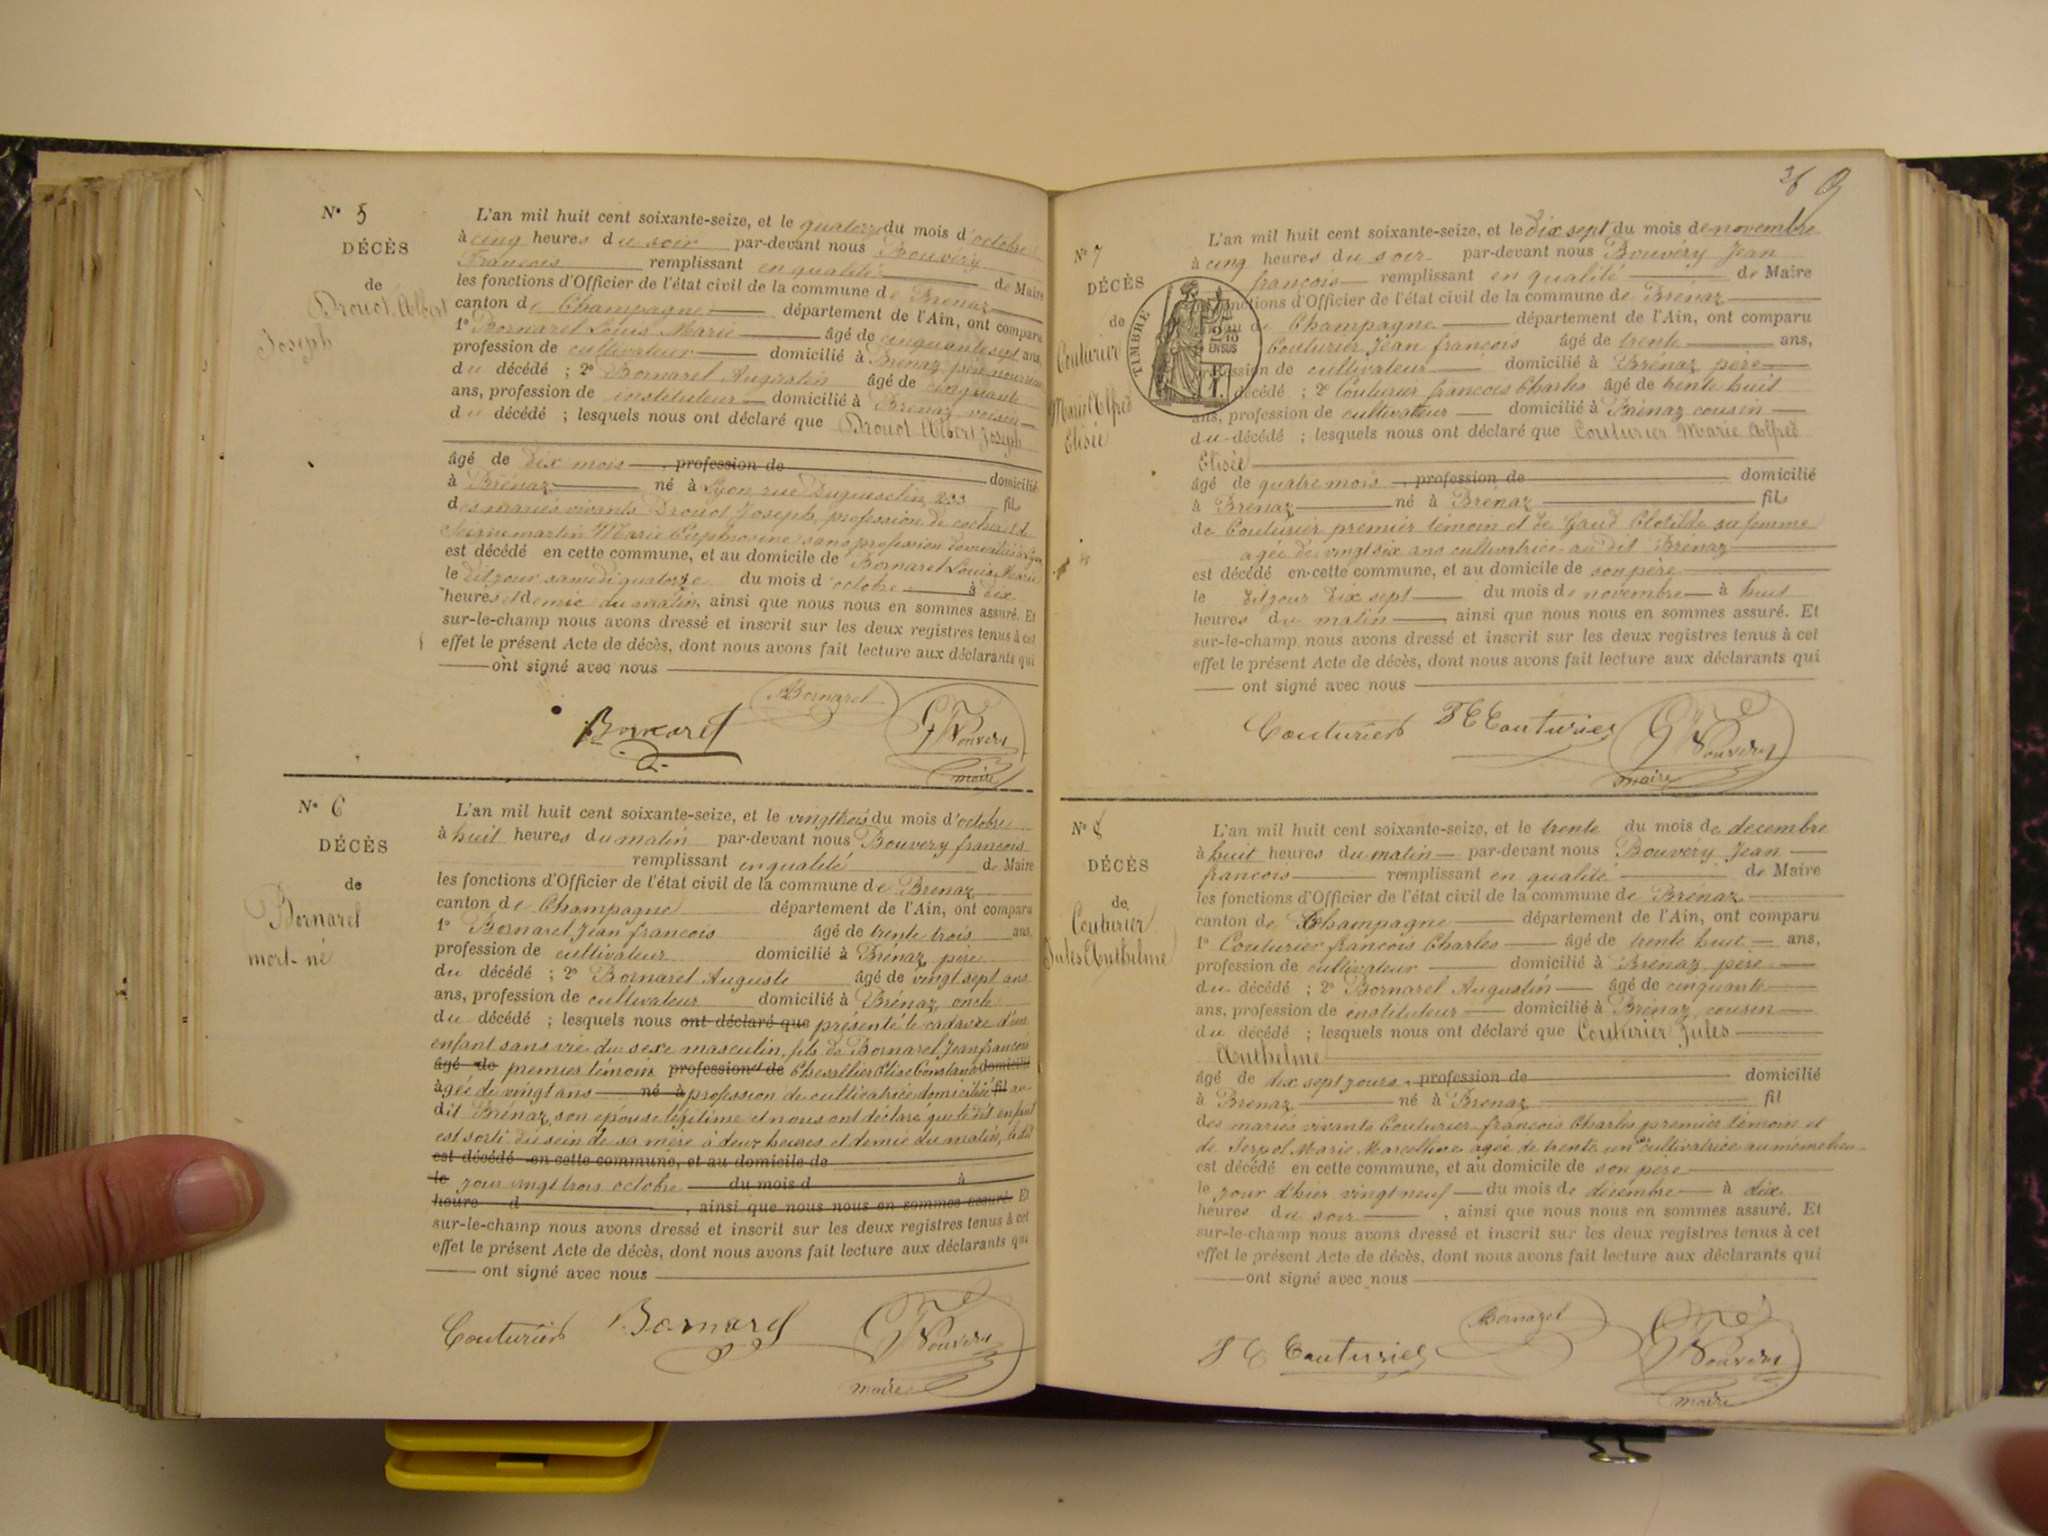 N° 5
DÉCÈS
de
Drouot Albert
Joseph
L'an mil huit cent soixante-seize, et le quatorze du mois d'octobre
à cinq heures du soir par-devant nous Bouvéry
François remplissant en qualité de Maire
les fonctions d'Officier de l'état civil de la commune de Brénaz
canton de Champagne département de l'Ain, ont comparu
1° Bornarel Louis Marie âgé de cinquante sept ans,
profession de cultivateur domicilié à Brénaz père nourricier
du décédé ; 2° Bornarel Augustin âgé de cinquante
ans, profession de instituteur domicilié à Brénaz voisin
du décédé ; lesquels nous ont déclaré que Drouot Albert Joseph
âgé de dix mois , profession de domicilié
à Brénaz né à Lyon rue Duguesclin, 233 fils
des mariés vivants Drouot Joseph, profession de cocher et de
martin Marie Euphrosine sans profession domiciliés à Lyon
est décédé en cette commune, et au domicile de Bornarel Louis Marie
le dit jour samedi quatorze du mois d'octobre à dix
heures et demie du matin, ainsi que nous nous en sommes assuré. Et
sur-le-champ nous avons dressé et inscrit sur les deux registres tenus à cet
effet le présent Acte de décès, dont nous avons fait lecture aux déclarants qui
ont signé avec nous
Bornarel
Bornarel
Bouvéry
maire
N° 6
DÉCÈS
de
Bornarel
mort-né
L'an mil huit cent soixante-seize, et le vingt trois du mois d'octobre
à huit heures du matin par-devant nous Bouvery françois
remplissant en qualité de Maire
les fonctions d'Officier de l'état civil de la commune de Brenaz
canton de Champagne département de l'Ain, ont comparu
1° Bornarel Jean françois âgé de trente trois ans,
profession de cultivateur domicilié à Brénaz père
du décédé ; 2° Bornarel Auguste âgé de vingt sept ans
ans, profession de cultivateur domicilié à Brénaz, oncle
du décédé ; lesquels nous ont déclaré que présenté le cadavre d'un
enfant sans vie du sexe masculin, fils de Bornarel Jean françois
âgé de premier témoin profession et de Chevallier Elise Constance domicilié
âgée de vingt ans né à profession de cultivatrice domiciliée fil au
dit Brénaz, son épouse légitime et nous ont déclaré que le dit enfant
est sorti du sein de sa mère à deux heures et demie du matin, le dit
est décédé en cette commune, et au domicile de
le jour vingt trois octobre du mois d à
heure d , ainsi que nous nous en sommes assuré. Et
sur-le-champ nous avons dressé et inscrit sur les deux registres tenus à cet
effet le présent Acte de décès, dont nous avons fait lecture aux déclarants qui
ont signé avec nous
Couturier Bornarel Bouvéry
maire
36
N° 7
DÉCÈS
de
Couturier
Marie Alfred
Elisée
TIMBRE
2/10
EN SUS
L'an mil huit cent soixante-seize, et le dix sept du mois de novembre
à cinq heures du soir par-devant nous Bouvéry Jean
françois remplissant en qualité de Maire
fonctions d'Officier de l'état civil de la commune de Brénaz
de Champagne département de l'Ain, ont comparu
Couturier Jean françois âgé de trente ans,
profession de cultivateur domicilié à Brénaz père
décédé ; 2° Couturier françois Charles âgé de trente huit
ans, profession de cultivateur domicilié à Brénaz cousin
du décédé ; lesquels nous ont déclaré que Couturier Marie Alfred
Elisée
âgé de quatre mois , profession de domicilié
à Brénaz né à Brénaz fils
de Couturier premier témoin et de Gaud Clotilde sa femme
agée de vingt six ans cultivatrice au dit Brénaz
est décédé en cette commune, et au domicile de son père
le dit jour dix sept du mois de novembre à huit
heures du matin , ainsi que nous nous en sommes assuré. Et
sur-le-champ nous avons dressé et inscrit sur les deux registres tenus à cet
effet le présent Acte de décès, dont nous avons fait lecture aux déclarants qui
ont signé avec nous
Couturier F C Couturier Bouvéry
maire
N° 8
DÉCÈS
de
Couturier
Jules Anthelme
L'an mil huit cent soixante-seize, et le trente du mois de decembre
à huit heures du matin par-devant nous Bouvery Jean
françois remplissant en qualité de Maire
les fonctions d'Officier de l'état civil de la commune de Brénaz
canton de Champagne département de l'Ain, ont comparu
1° Couturier françois Charles âgé de trente huit ans,
profession de cultivateur domicilié à Brénaz père
du décédé ; 2° Bornarel Augustin âgé de cinquante
ans, profession de instituteur domicilié à Brénaz cousin
du décédé ; lesquels nous ont déclaré que Couturier Jules
Anthelme
âgé de dix sept jours , profession de domicilié
à Brenaz né à Brenaz fil
des mariés vivants Couturier françois Charles premier témoin et
de Serpol Marie Marcelline agée de trente un cultivatrice au même lieu
est décédé en cette commune, et au domicile de son père
le jour d'hier vingt neuf du mois de décembre à dix
heures du soir , ainsi que nous nous en sommes assuré. Et
sur-le-champ nous avons dressé et inscrit sur les deux registres tenus à cet
effet le présent Acte de décès, dont nous avons fait lecture aux déclarants qui
ont signé avec nous
F C Couturier Bornarel Bouvéry
maire